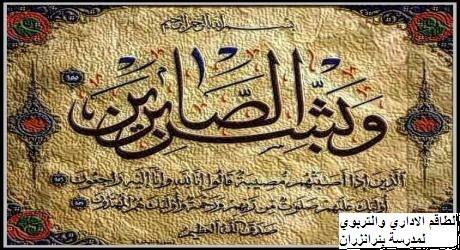 بسم الله الرحمن الرحيم
وبشر الصابرين
١٥٥
الذين إذا أصابتهم مصيبة قالوا إنا لله وإنا إليه راجعون
أولئك عليهم صلوات من ربهم ورحمة وأولئك هم المهتدون
صدق الله العظيم
الطاقم الاداري والتربوي
لمدرسة بئرانزران